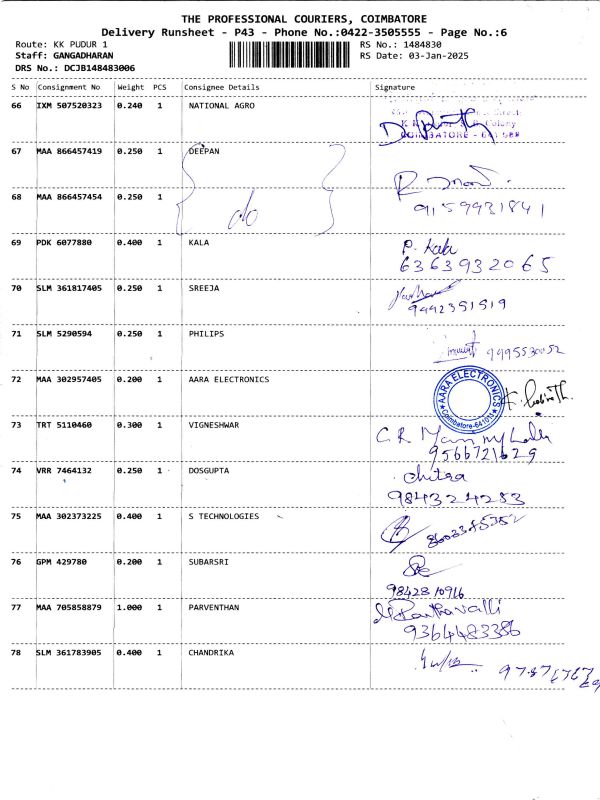 THE PROFESSIONAL COURIERS, COIMBATORE
Delivery Runsheet - P43 - Phone No.:0422-3505555 - Page No.:6
Route: KK PUDUR 1 RS No.: 1484830
Staff: GANGADHARAN RS Date: 03-Jan-2025
DRS No.: DCJB148483006
S No Consignment No Weight PCS Consignee Details Signature
66 IXM 507520323 0.240 1 NATIONAL AGRO
Colony
COIMBATORE - 641
67 MAA 866457419 0.250 1 DEEPAN
68 MAA 866457454 0.250 1 do
9159931841
69 PDK 6077880 0.400 1 KALA P. Kala
6363932065
70 SLM 361817405 0.250 1 SREEJA
9442351519
71 SLM 5290594 0.250 1 PHILIPS
9995530052
72 MAA 302957405 0.200 1 AARA ELECTRONICS
AARA ELECTRONICS
Coimbatore-641010
73 TRT 5110460 0.300 1 VIGNESHWAR C.R
9566721629
74 VRR 7464132 0.250 1 DOSGUPTA chitra
9843224253
75 MAA 302373225 0.400 1 S TECHNOLOGIES
76 GPM 429780 0.200 1 SUBARSRI
9842310916
77 MAA 705858879 1.000 1 PARVENTHAN
9364483386
78 SLM 361783905 0.400 1 CHANDRIKA